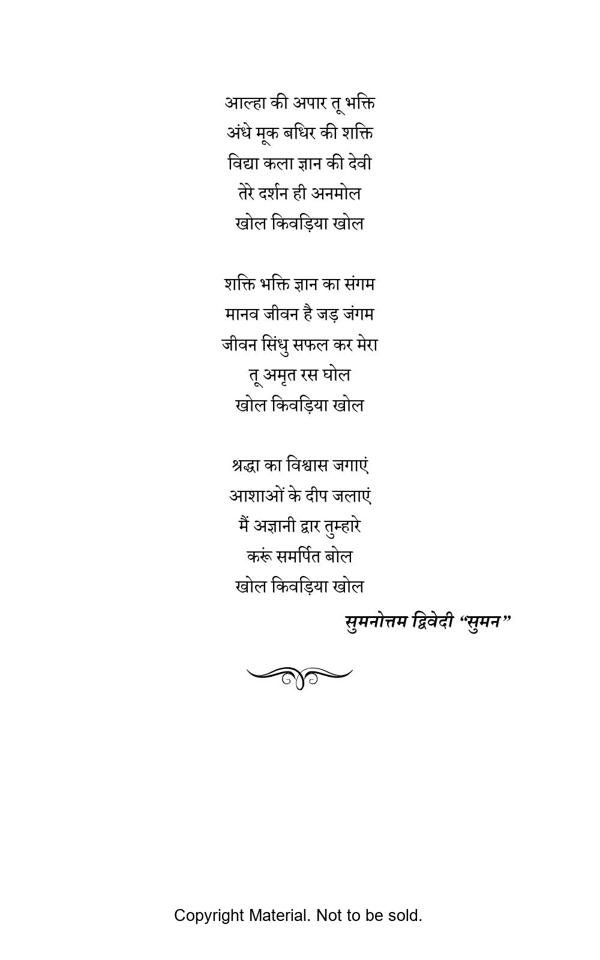 आल्हा की अपार तू भक्ति
अंधे मूक बधिर की शक्ति
विद्या कला ज्ञान की देवी
तेरे दर्शन ही अनमोल
खोल किवड़िया खोल
शक्ति भक्ति ज्ञान का संगम
मानव जीवन है जड़ जंगम
जीवन सिंधु सफल कर मेरा
तू अमृत रस घोल
खोल किवड़िया खोल
श्रद्धा का विश्वास जगाएं
आशाओं के दीप जलाएं
मैं अज्ञानी द्वार तुम्हारे
करूं समर्पित बोल
खोल किवड़िया खोल
सुमनोत्तम द्विवेदी “सुमन”
Copyright Material. Not to be sold.